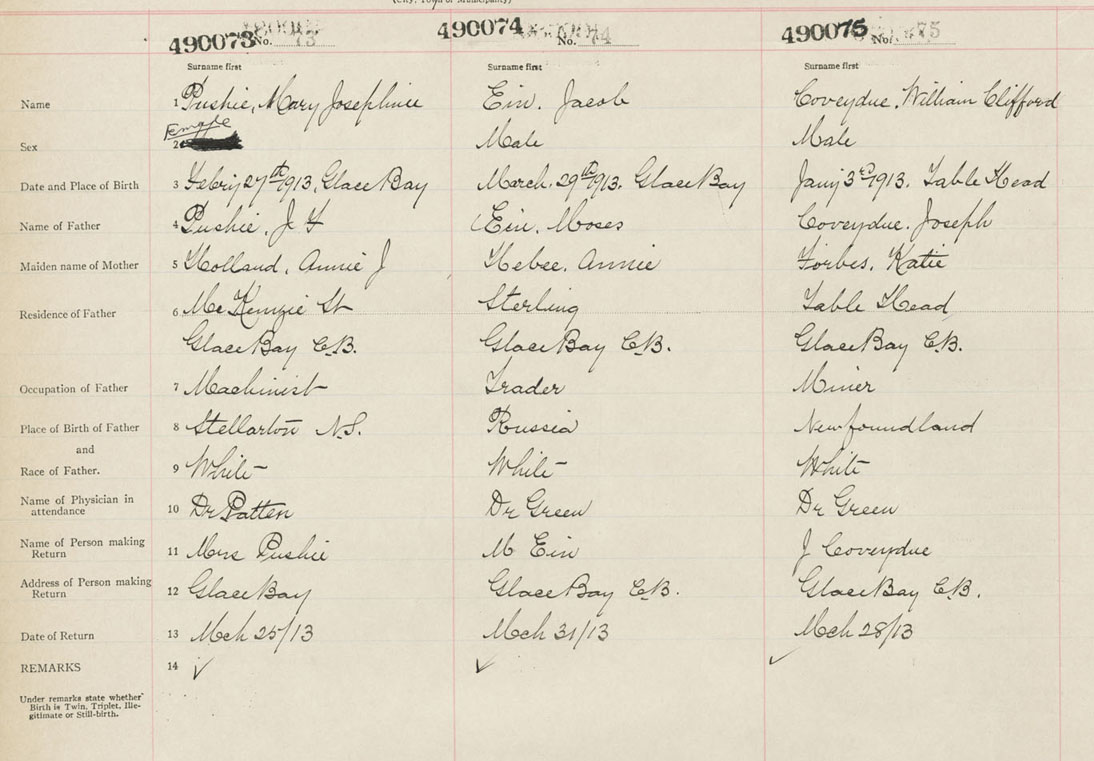 (City, Town or Municipality)
490073 No. 73 490074 No. 74 490075 No. 75
Surname first Surname first Surname first
Name 1 Pushie, Mary Josephine Ein. Jacob Coveydue, William Clifford
Female
Sex 2 Male Male
Date and Place of Birth 3 Febry 27th 1913, Glace Bay March. 29th 1913. Glace Bay Jany 3rd 1913. Table Head
Name of Father 4 Pushie, J F Ein. Moses Coveydue. Joseph
Maiden name of Mother 5 Holland, Annie J Hebee. Annie Forbes. Katie
Residence of Father 6 Mc Kenzie St Sterling Table Head
Glace Bay C.B. Glace Bay C.B. Glace Bay C.B.
Occupation of Father 7 Machinist Trader Miner
Place of Birth of Father 8 Stellarton N.S. Russia Newfoundland
and
Race of Father. 9 White White White
Name of Physician in attendance 10 Dr Patten Dr Green Dr Green
Name of Person making Return 11 Mrs Pushie M Ein J Coveydue
Address of Person making Return 12 Glace Bay Glace Bay C.B. Glace Bay C.B.
Date of Return 13 Mch 25/13 Mch 31/13 Mch 28/13
REMARKS 14 ✓ ✓ ✓
Under remarks state whether
Birth is Twin, Triplet, Ille-
gitimate or Still-birth.